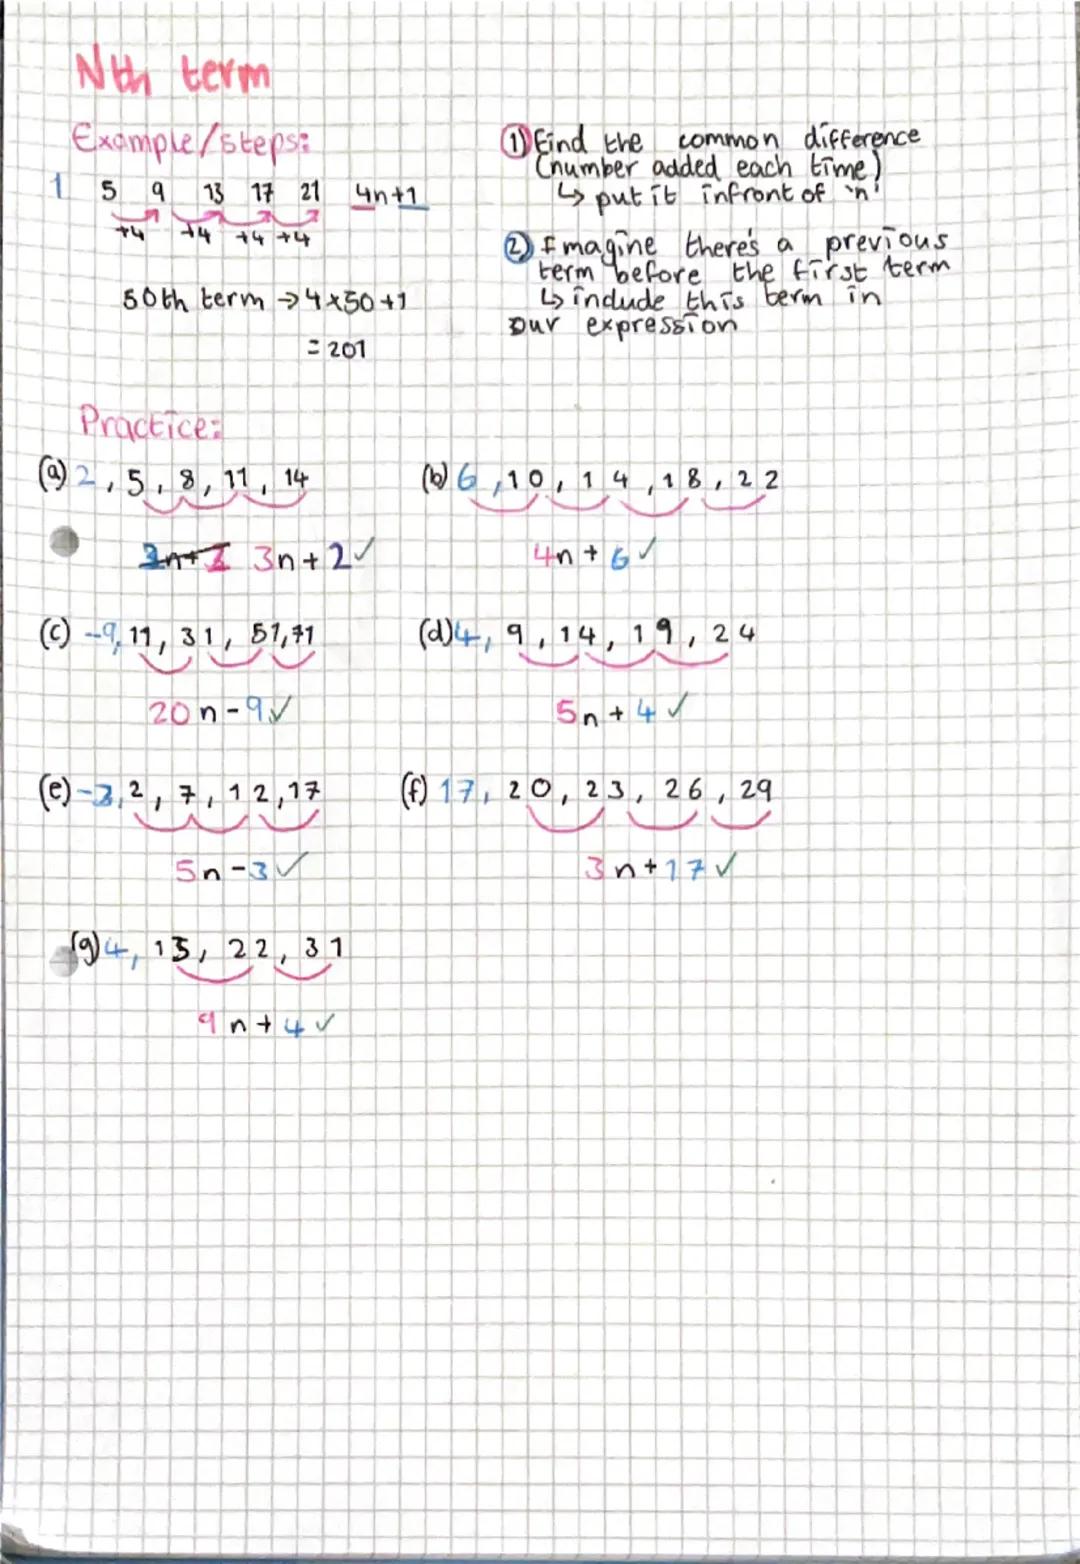 Nth term
Example/steps:
1 5 9 13 17 21 4n+1
+4 +4 +4 +4
50th term → 4×50+1
= 201
① Find the common difference
(number added each time)
↳ put it infront of 'n'
② Imagine there's a previous
term before the first term
↳ include this term in
our expression
Practice:
(a) 2, 5, 8, 11, 14
3n+2 ✓
(b) 6, 10, 14, 18, 22
4n + 6 ✓
(c) -9, 11, 31, 51, 71
20n - 9 ✓
(d) 4, 9, 14, 19, 24
5n + 4 ✓
(e) -3, 2, 7, 12, 17
5n - 3 ✓
(f) 17, 20, 23, 26, 29
3n + 17 ✓
(g) 4, 13, 22, 31
9n + 4 ✓